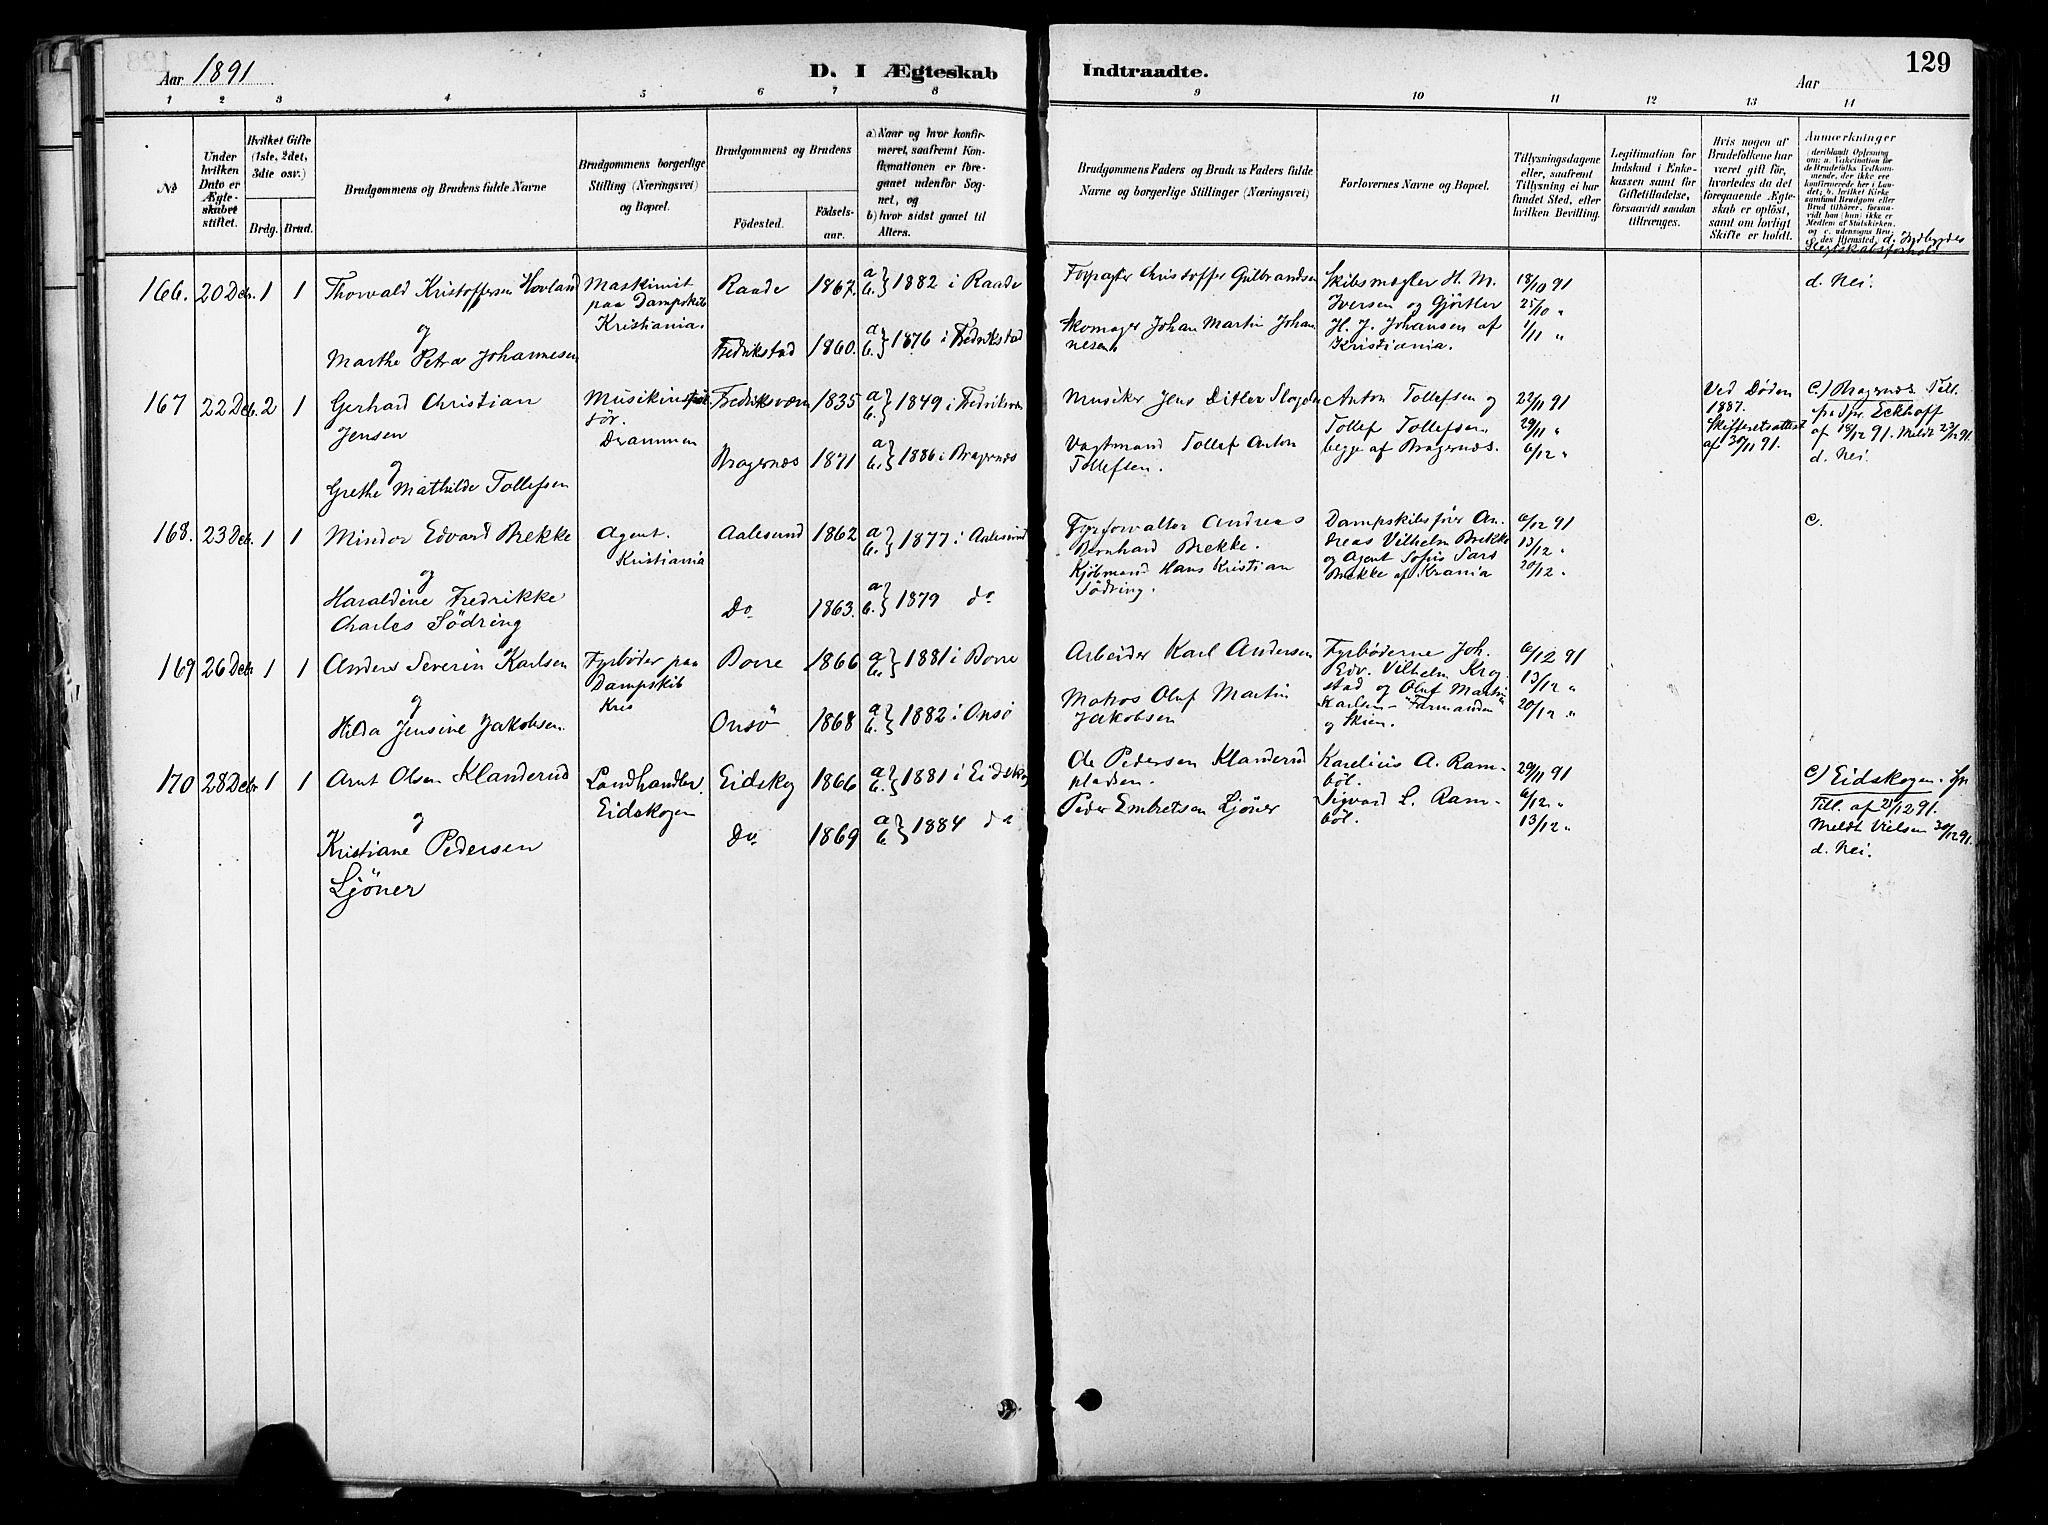 Aar 1891
D. I Ægteskab Indtraadte.
Aar
129
1 2 3 4 5 6 7 8 9 10 11 12 13 14
No
Under hvilken Dato er Ægteskabet stiftet.
Hvilket Gifte (1ste, 2det, 3die osv.)
Brdg. Brud.
Brudgommens og Brudens fulde Navne
Brudgommens borgerlige Stilling (Næringsvei) og Bopæl.
Brudgommens og Brudens
Födested. Födselsaar.
a) Naar og hvor konfirmeret, saafremt Konfirmationen er foregaaet udenfor Sognet, og
b) hvor sidst gaaet til Alters.
Brudgommens Faders og Brudens Faders fulde Navne og borgerlige Stillinger (Næringsvei)
Forlovernes Navne og Bopæl.
Tillysningsdagene eller, saafremt Tillysning ei har fundet Sted, efter hvilken Bevilling.
Legitimation for Indskud i Enkekassen samt for Giftetilladelse, forsaavidt saadan tiltrænges.
Hvis nogen af Brudefolkene har været gift för, hvorledes da det foregaaende Ægteskab er oplöst, samt om lovligt Skifte er holdt.
Anmærkninger
(deriblandt Oplysning om: a. Vakcination for de Brudefolks Vedkommende, der ikke ere konfirmerede her i Landet; b. hvilket Kirkesamfund Brudgom eller Brud tilhörer, forsaavidt han (hun) ikke er Medlem af Statskirken, og c. udensogns Brudes Hjemsted, d. Indbyrdes Slegtskabsforhold
166. 20 Dcb. 1 1
Thorvald Kristoffersen Hovland
og
Marthe Petra Johannesen
Maskinist
paa Dampskib
Kristiania.
Raade 1867. a b. } 1882 i Raade
Fredrikstad 1860. a b. } 1876 i Fredrikstad
Forpagter Christoffer Gulbrandsen
Skomager Johan Martin Johannesen
Skibsmægler H. M.
Iversen og Gjörtler
H. J. Johansen af
Kristiania.
18/10 91
25/10 "
1/11 "
d. Nei.
167 22 Dcb. 2 1
Gerhard Christian
Jensen
og
Grethe Mathilde Tollefsen
Drammen
Fredriksværn 1835 a b. } 1849 i Fredriksværn
Bragernæs 1871 a b. } 1886 i Bragernæs
Musiker Jens Ditlev
Vagtmand Tollef Anton
Tollefsen.
Anton Tollefsen og
Tollef Tollefsen
begge af Bragernæs.
22/11 91
29/11 "
6/12 "
Ved Döden
1887.
Skifteretsattest
af 30/11 91.
c.) Bragernæs. Till.
Spr. Eckhoff
af 18/12 91. Meldt 23/12 91.
d. Nei.
168. 23 Dcb. 1 1
Mindor Edvard Brekke
og
Haraldine Fredrikke
Charles Södring
Agent.
Kristiania
Aalesund 1862 a b. } 1877 i Aalesund
Do 1863. a b. } 1879 do
Fyrforvalter Andreas
Bernhard Brekke.
Kjöbmand Hans Kristian
Södring.
Dampskibsförer Andreas Vilhelm Brekke
og Agent Sofus Sars
Brekke af Krania
6/12 91
13/12 "
20/12 "
c.
169 26 Dcb 1 1
Anders Severin Karlsen
og
Hilda Jensine Jakobsen.
Fyrböder paa
Dampskib
Kris
Borre 1866 a b. } 1881 i Borre
Onsö 1868 a b. } 1882 i Onsö
Arbeider Karl Andersen
Matros Oluf Martin
Jakobsen
Fyrböderne Joh.
Edv. Vilhelm Krogstad og Oluf Martin
Karlsen - "Farmanden"
og Skien.
6/12 91
13/12 "
20/12 "
170 28 Dcbr 1 1
Arnt Olsen Klanderud
og
Kristiane Pedersen
Ljöner
Landhandler.
Eidskogen
Eidskog 1866 a b. } 1881 i Eidskog
Do 1869 a b. } 1884 do
Ole Pedersen Klanderudpladsen.
Peder Embretsen Ljöner
Karelius A. Ramböl.
Sigvard L. Ramböl.
29/11 91
6/12 "
13/12 "
c) Eidskogen.
Till. af 28/12 91.
Meldt Vielsen 30/12 91.
d. Nei.